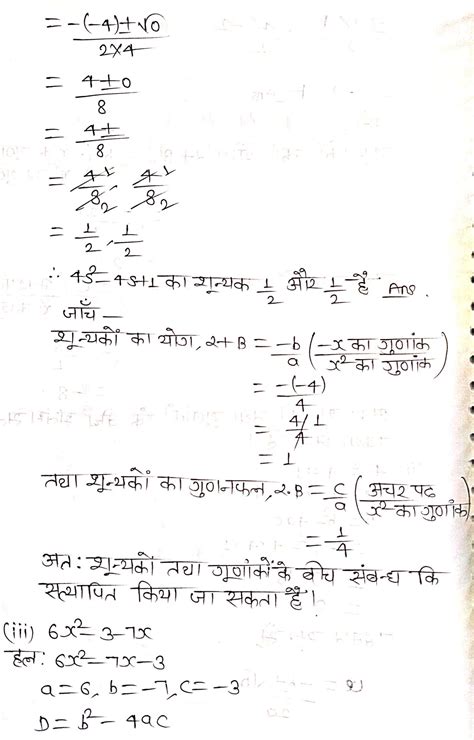 = -(-4)±√0 / 2×4
= 4±0 / 8
= 4± / 8
= 4 1 / 8 2 , 4 1 / 8 2
= 1/2 , 1/2
∴ 4s²-4s+1 का शून्यक 1/2 और 1/2 है Ans.
जाँच —
शून्यकों का योग, 2+B = -b/a (-x का गुणांक / x² का गुणांक)
= -(-4) / 4
= 4/1 / 4
= 1
तथा शून्यकों का गुणनफल, 2.B = c/a (अचर पद / x² का गुणांक)
= 1/4
अत: शून्यकों तथा गुणांकों के बीच संबन्ध कि
सत्यापित किया जा सकता है।
(iii) 6x²-3-7x
हल: 6x²-7x-3
a=6, b=-7, c=-3
D = b²-4ac